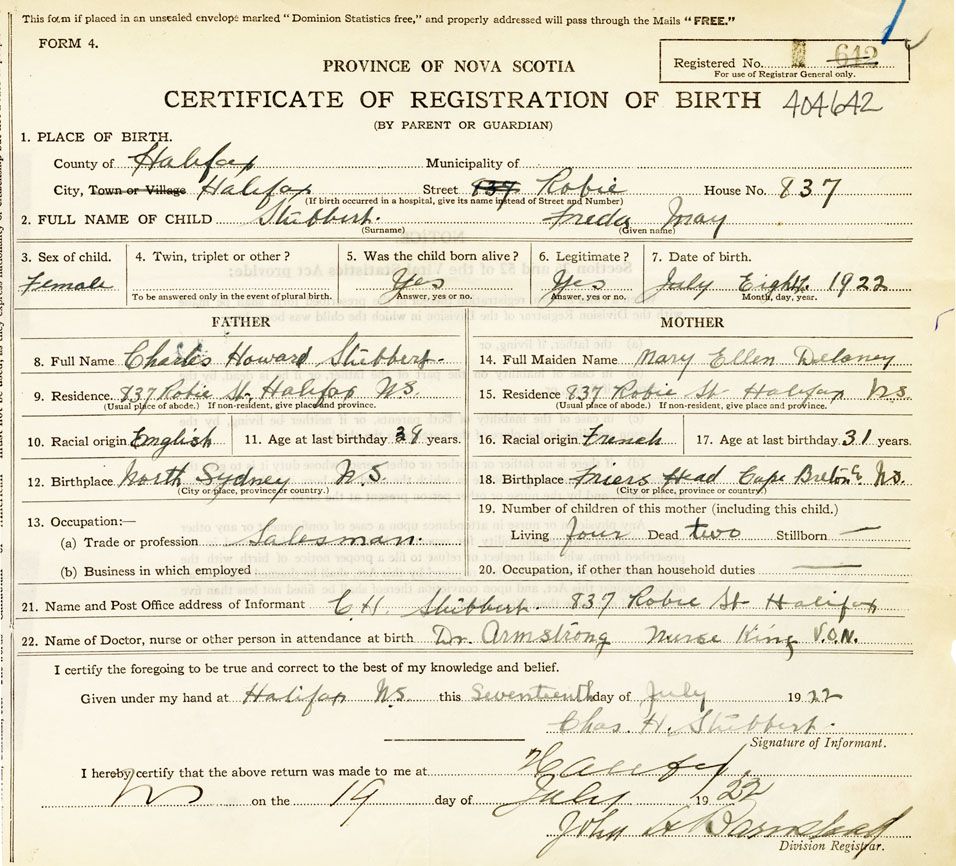 This form if placed in an unsealed envelope marked "Dominion Statistics free," and properly addressed will pass through the Mails "FREE."
FORM 4.
Registered No. 642
For use of Registrar General only.
PROVINCE OF NOVA SCOTIA
CERTIFICATE OF REGISTRATION OF BIRTH 404642
(BY PARENT OR GUARDIAN)
1. PLACE OF BIRTH.
County of Halifax Municipality of
City, Town or Village Halifax Street 837 Robie House No. 837
(If birth occurred in a hospital, give its name instead of Street and Number)
2. FULL NAME OF CHILD Stubbert. Freda May
(Surname) (Given name)
3. Sex of child. 4. Twin, triplet or other? 5. Was the child born alive? 6. Legitimate? 7. Date of birth.
Female Yes Yes July Eight. 1922
To be answered only in the event of plural birth. Answer, yes or no. Answer, yes or no. Month, day, year.
FATHER
8. Full Name Charles Howard Stubbert.
9. Residence. 837 Robie St. Halifax NS.
(Usual place of abode.) If non-resident, give place and province.
10. Racial origin English 11. Age at last birthday 39 years.
12. Birthplace North Sydney NS.
(City or place, province or country.)
13. Occupation:—
(a) Trade or profession Salesman.
(b) Business in which employed
MOTHER
14. Full Maiden Name Mary Ellen Delaney
15. Residence 837 Robie St Halifax NS.
(Usual place of abode.) If non-resident, give place and province.
16. Racial origin French 17. Age at last birthday. 31 years.
18. Birthplace Friers Head Cape Breton NS.
(City or place, province or country)
19. Number of children of this mother (including this child.)
Living four Dead two Stillborn —
20. Occupation, if other than household duties —
21. Name and Post Office address of Informant C.H. Stubbert. 837 Robie St Halifax
22. Name of Doctor, nurse or other person in attendance at birth Dr. Armstrong Nurse King V.O.N.
I certify the foregoing to be true and correct to the best of my knowledge and belief.
Given under my hand at Halifax NS. this Seventeenth day of July 1922
Chas. H. Stubbert.
Signature of Informant.
I hereby certify that the above return was made to me at Halifax
NS on the 19 day of July 1922
John A Barnstead
Division Registrar.